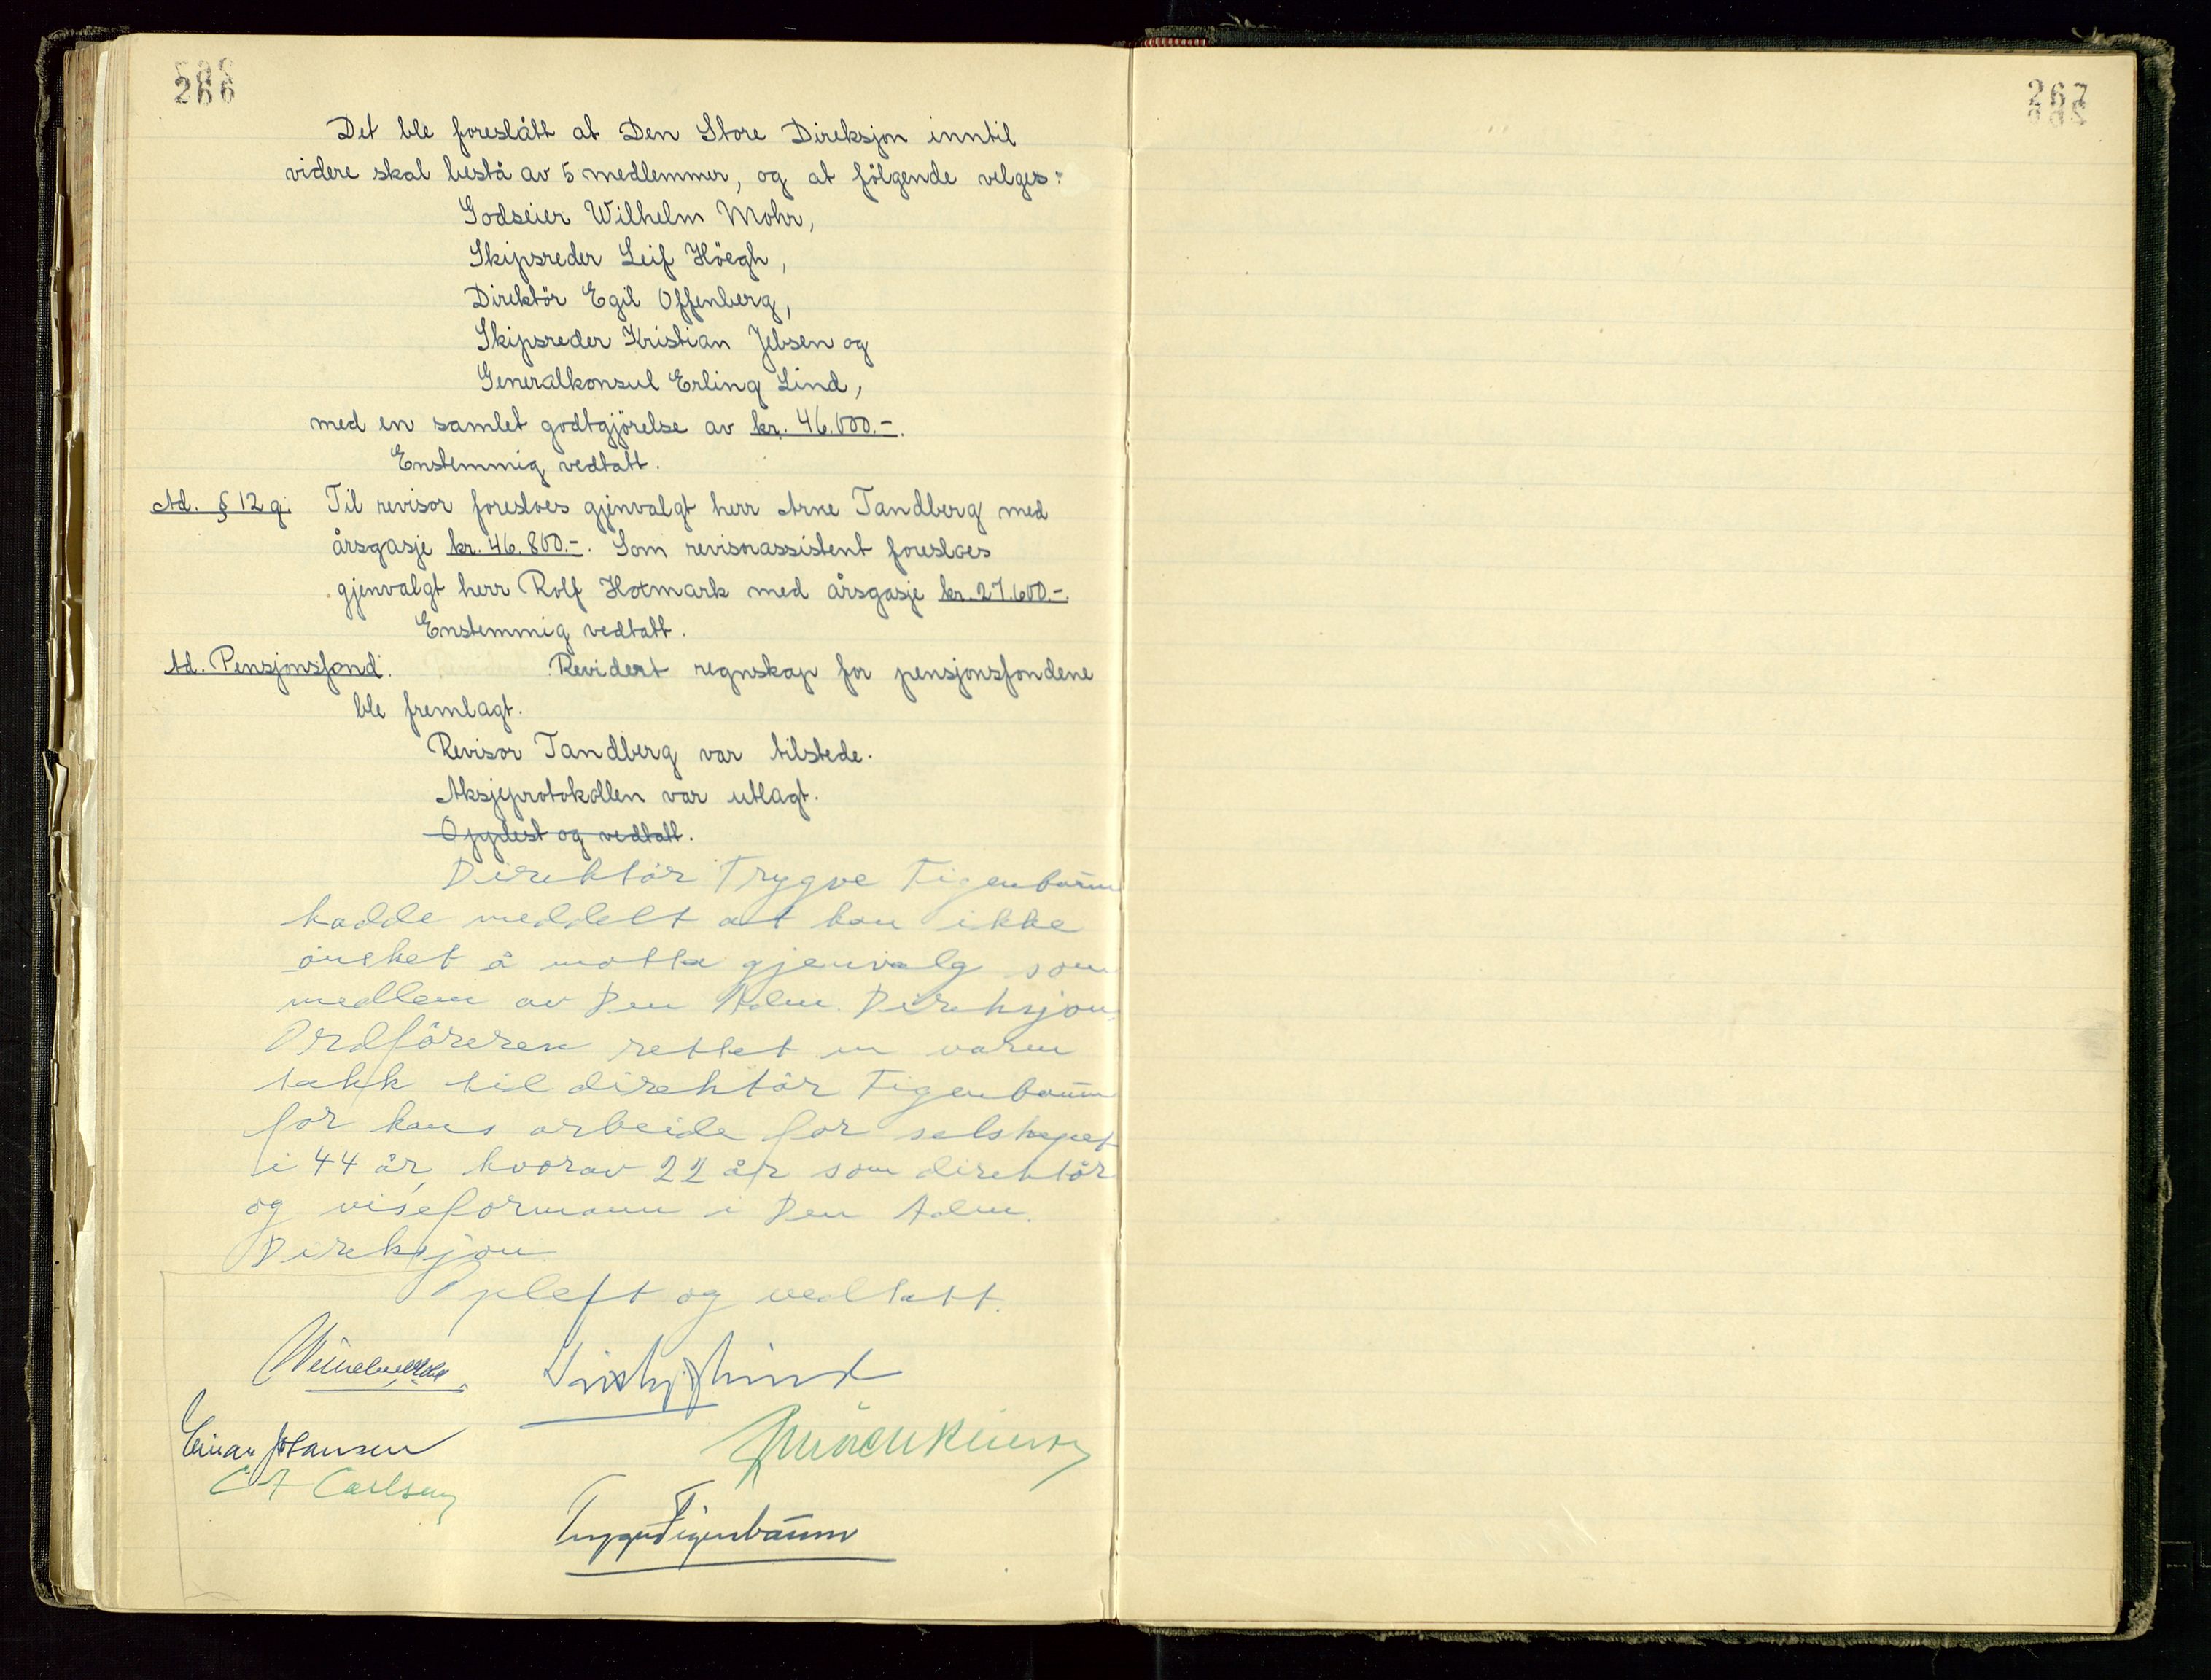 266
267
Det ble foreslått at Den Store Direksjon inntil
videre skal bestå av 5 medlemmer, og at følgende velges:
Godseier Wilhelm Mohr,
Skipsreder Leif Höegh,
Direktör Egil Offenberg,
Skipsreder Kristian Jebsen og
Generalkonsul Erling Lind,
med en samlet godtgjörelse av kr. 46.000.-.
Enstemmig vedtatt.
Ad. § 12 g. Til revisor foresloes gjenvalgt herr Arne Tandberg med
årsgasje kr. 46.800.-. Som revisorassistent foresloes
gjenvalgt herr Rolf Hotmark med årsgasje kr. 27.600.-.
Enstemmig vedtatt.
Ad. Pensjonsfond. Revidert regnskap for pensjonsfondene
ble fremlagt.
Revisor Tandberg var tilstede.
Aksjeprotokollen var utlagt.
Opplest og vedtatt.
Direktör Trygve Figenbaum
hadde meddelt at han ikke
önsket å motta gjenvalg som
medlem av Den Adm. Direksjon.
Ordföreren rettet en varm
takk til direktör Figenbaum
for hans arbeide for selskapet
i 44 år, hvorav 22 år som direktör
og viseformann i Den Adm.
Direksjon
Opplest og vedtatt.
Einar Johansen
C A Carlsen
Trygve Figenbaum